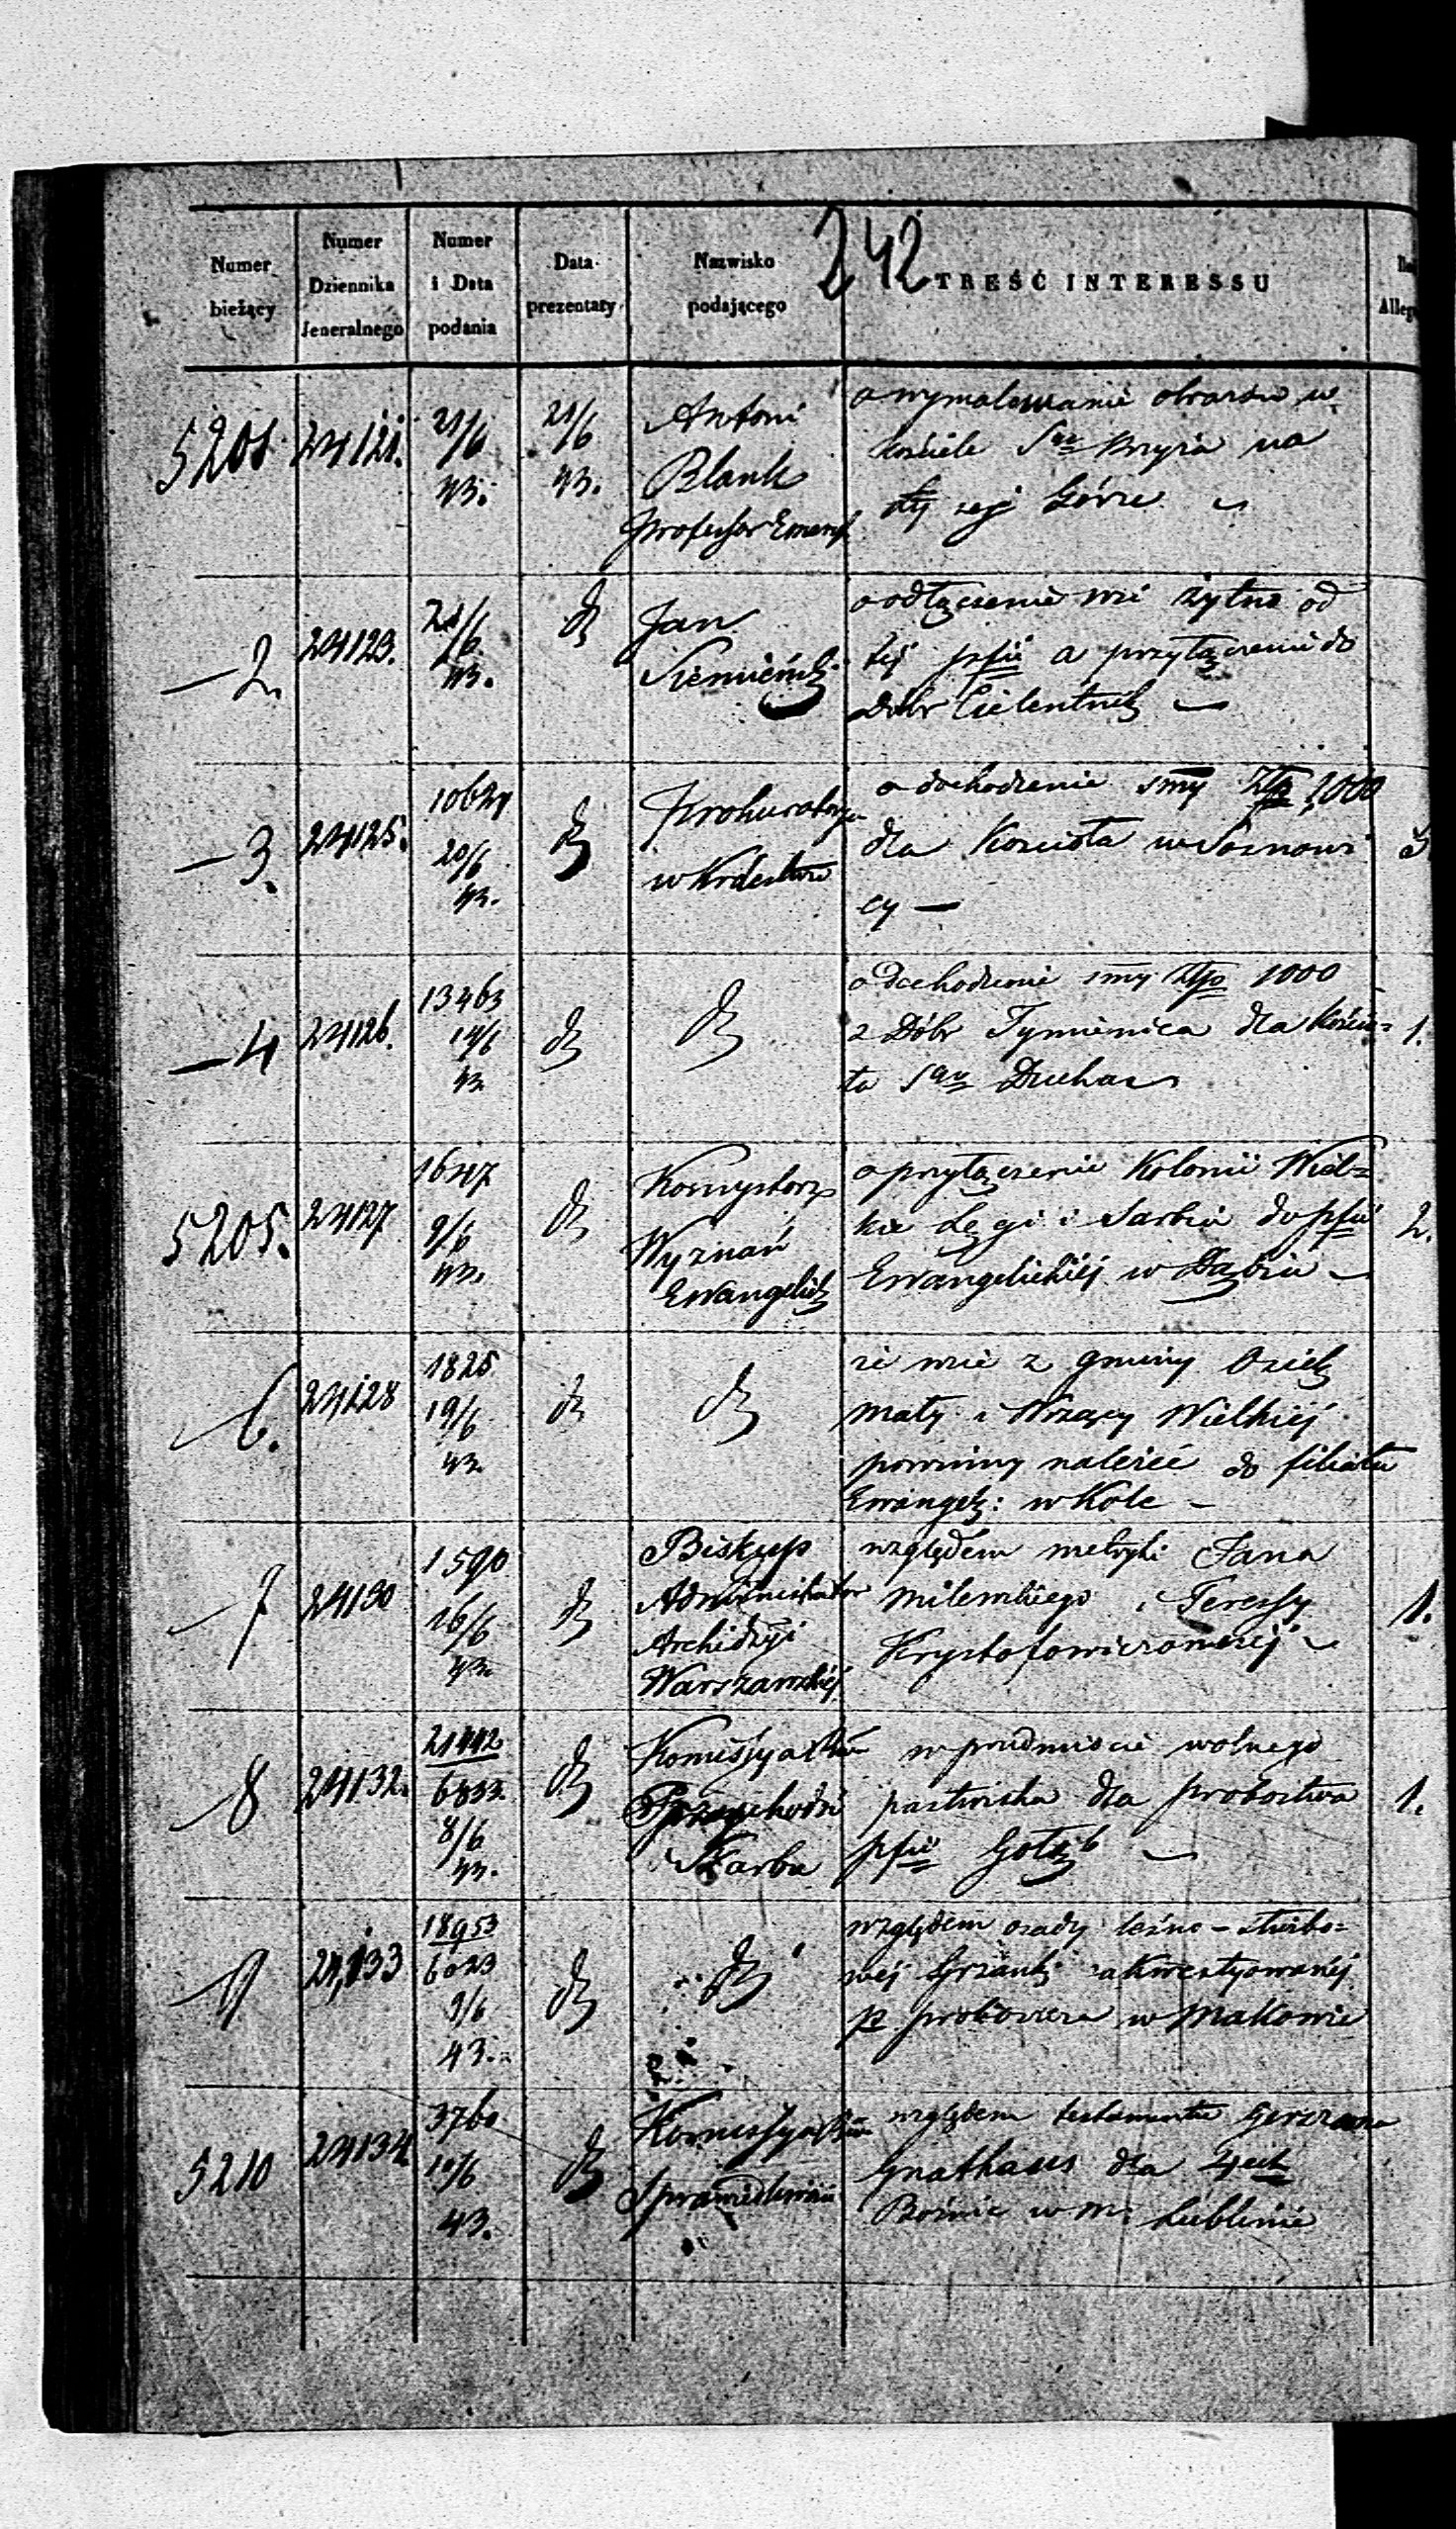 242
Numer bieżący
Numer Dziennika Jeneralnego
Numer i Data podania
Data prezentaty
Nazwisko podającego
TREŚĆ INTERESSU
5201 24121. 21/6 43. 21/6 43.
Antoni
Blank
Professor Emeryt
o wymalowanie obrazów w
kościele Sgo Krzyża na
Łysej Górze
—2. 24123. 21/6 43. dt
Jan
Siemieński
o odłączenie wsi Żytno od
tej pfii a przyłączenie do
Dóbr Cielentnik —
—3. 24125. 10624 20/6 43. dt
Prokuratorya
w Królestwie
o dochodzenie smy Złp 1000
dla Kościoła w Sosnowi
cy —
—4 24126. 13463 14/6 43 dt
dt
o dochodzenie smy Złp 1000
z Dóbr Tymienica dla Kościo=
ła Sgo Ducha
1.
5205. 24127 1647 9/6 43. dt
Konsystorz
Wyznań
Ewangelick
o przyłączenie Kolonii Wiel=
kie Łęgi i Sarbia do pfii
Ewangelickiéj w Dąbiu —
2.
—6. 24128 1825 19/6 43. dt
dt
że wsie z gminy Osiek
mały i Wrzący Wielkiéj
powinny należeć do filiału
Ewangel: w Kole —
—7 24130 1590 16/6 43. dt
Biskup
Administrator
Archidyi
Warszawskiéj
względem metryki Jana
Milewskiego i Teressy
Krysztofowiczowéj
1.
—8 24132. 21442 6833. 8/6 43. dt
Komissya Rów
Przychodów
i Skarbu
w przedmiocie wolnego
pastwiska dla probostwa
pfii Gołąb —
1.
—9 24,133 18953 6023 9/6 43. dt
dt
względem osady leśno-służbo=
wéj zakwestyowanéj
pr proboszcza w Makowie
5210 24134 3760 10/6 43. dt
Komissya Rów
Sprawiedliwości
względem testamentu Gerszona
Gnathaus dla
Bóżnic w m. Lublinie